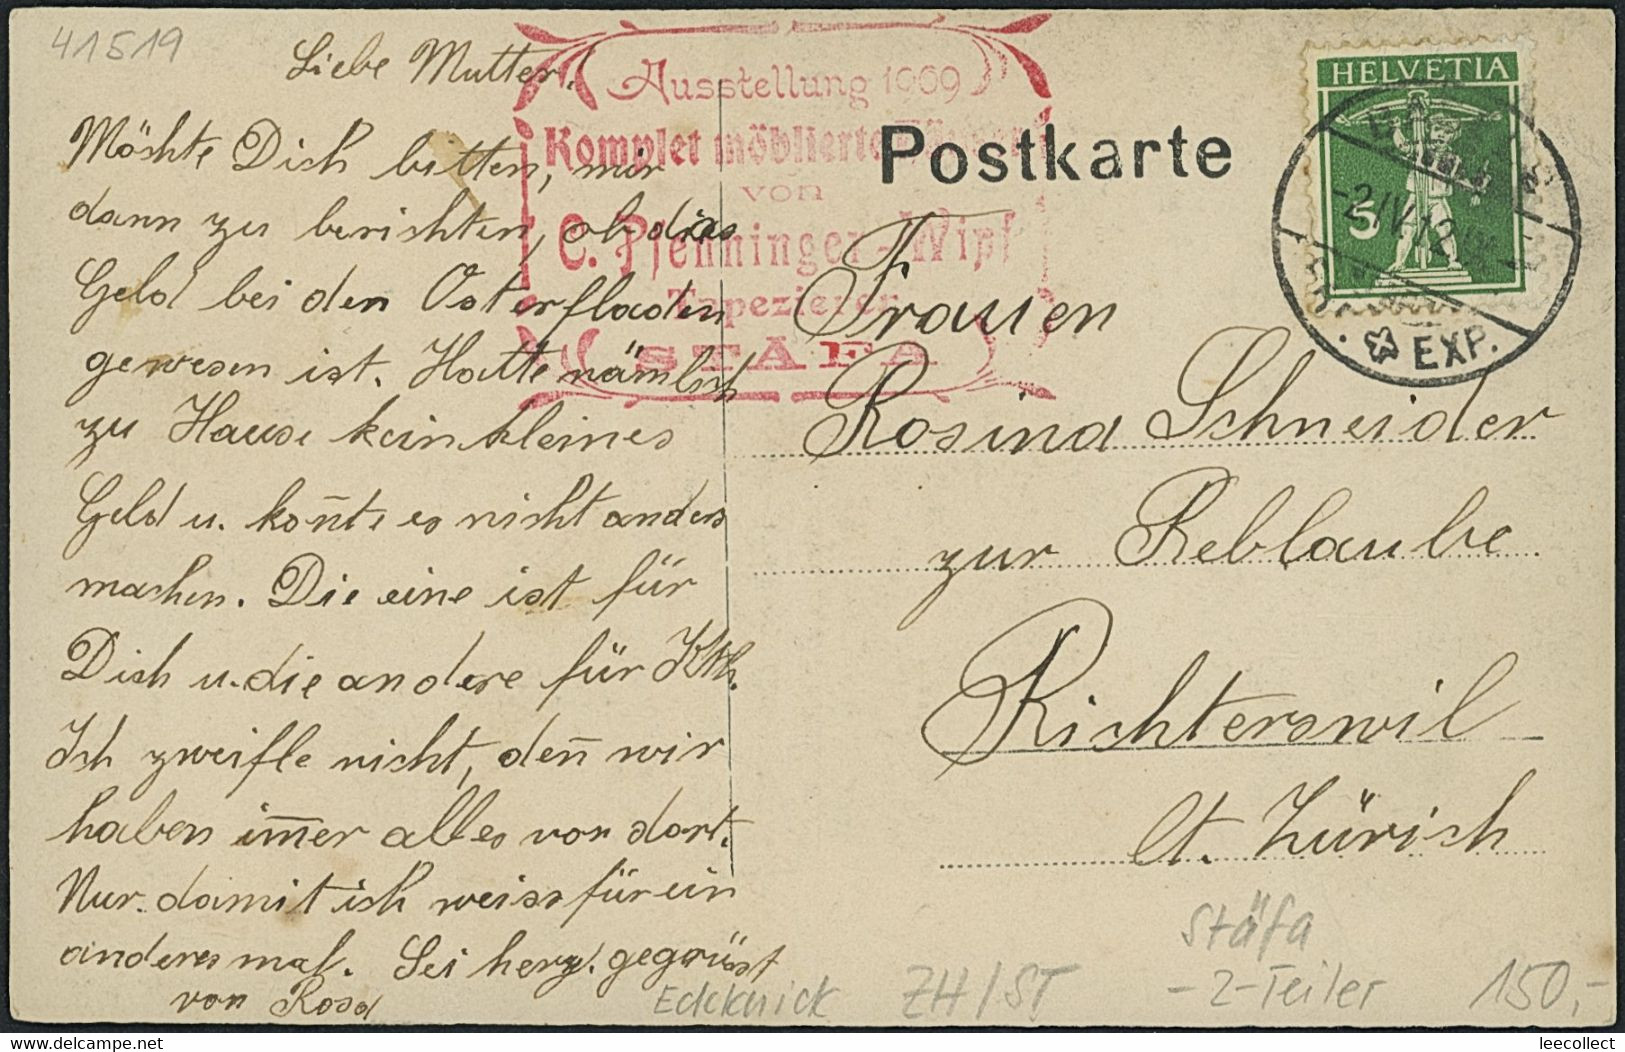 41519
Liebe Mutter!
Möchte Dich bitten, mir
dann zu berichten, ob das
Geld bei den Osterfladen
gewesen ist. Hatte nämlich
zu Hause kein kleines
Geld u. kon̄te es nicht anders
machen. Die eine ist für
Dich u. die andere für Kth.
Ich zweifle nicht, den̄ wir
haben im̄er alles von dort.
Nur damit ich weiss für ein
anderes mal. Sei herzl. gegrüsst
von Rosa
Ausstellung 1909
Komplet möblierte
von
C. Pfenninger-Wipf
Tapezierer
STÄFA
Postkarte
HELVETIA
5
-2.IV.12
EXP.
Frauen
Rosina Schneider
zur Reblaube
Richterswil
Ct. Zürich
Stäfa
Eckknick ZH/ST - 2-Teiler 150,-
www.delcampe.net
leecollect